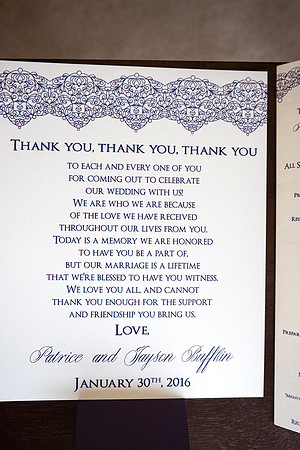 THANK YOU, THANK YOU, THANK YOU
TO EACH AND EVERY ONE OF YOU
FOR COMING OUT TO CELEBRATE
OUR WEDDING WITH US!
WE ARE WHO WE ARE BECAUSE
OF THE LOVE WE HAVE RECEIVED
THROUGHOUT OUR LIVES FROM YOU.
TODAY IS A MEMORY WE ARE HONORED
TO HAVE YOU BE A PART OF,
BUT OUR MARRIAGE IS A LIFETIME
THAT WE'RE BLESSED TO HAVE YOU WITNESS.
WE LOVE YOU ALL, AND CANNOT
THANK YOU ENOUGH FOR THE SUPPORT
AND FRIENDSHIP YOU BRING US.
LOVE,
Patrice and Jayson Buffkin
JANUARY 30TH, 2016
ALL